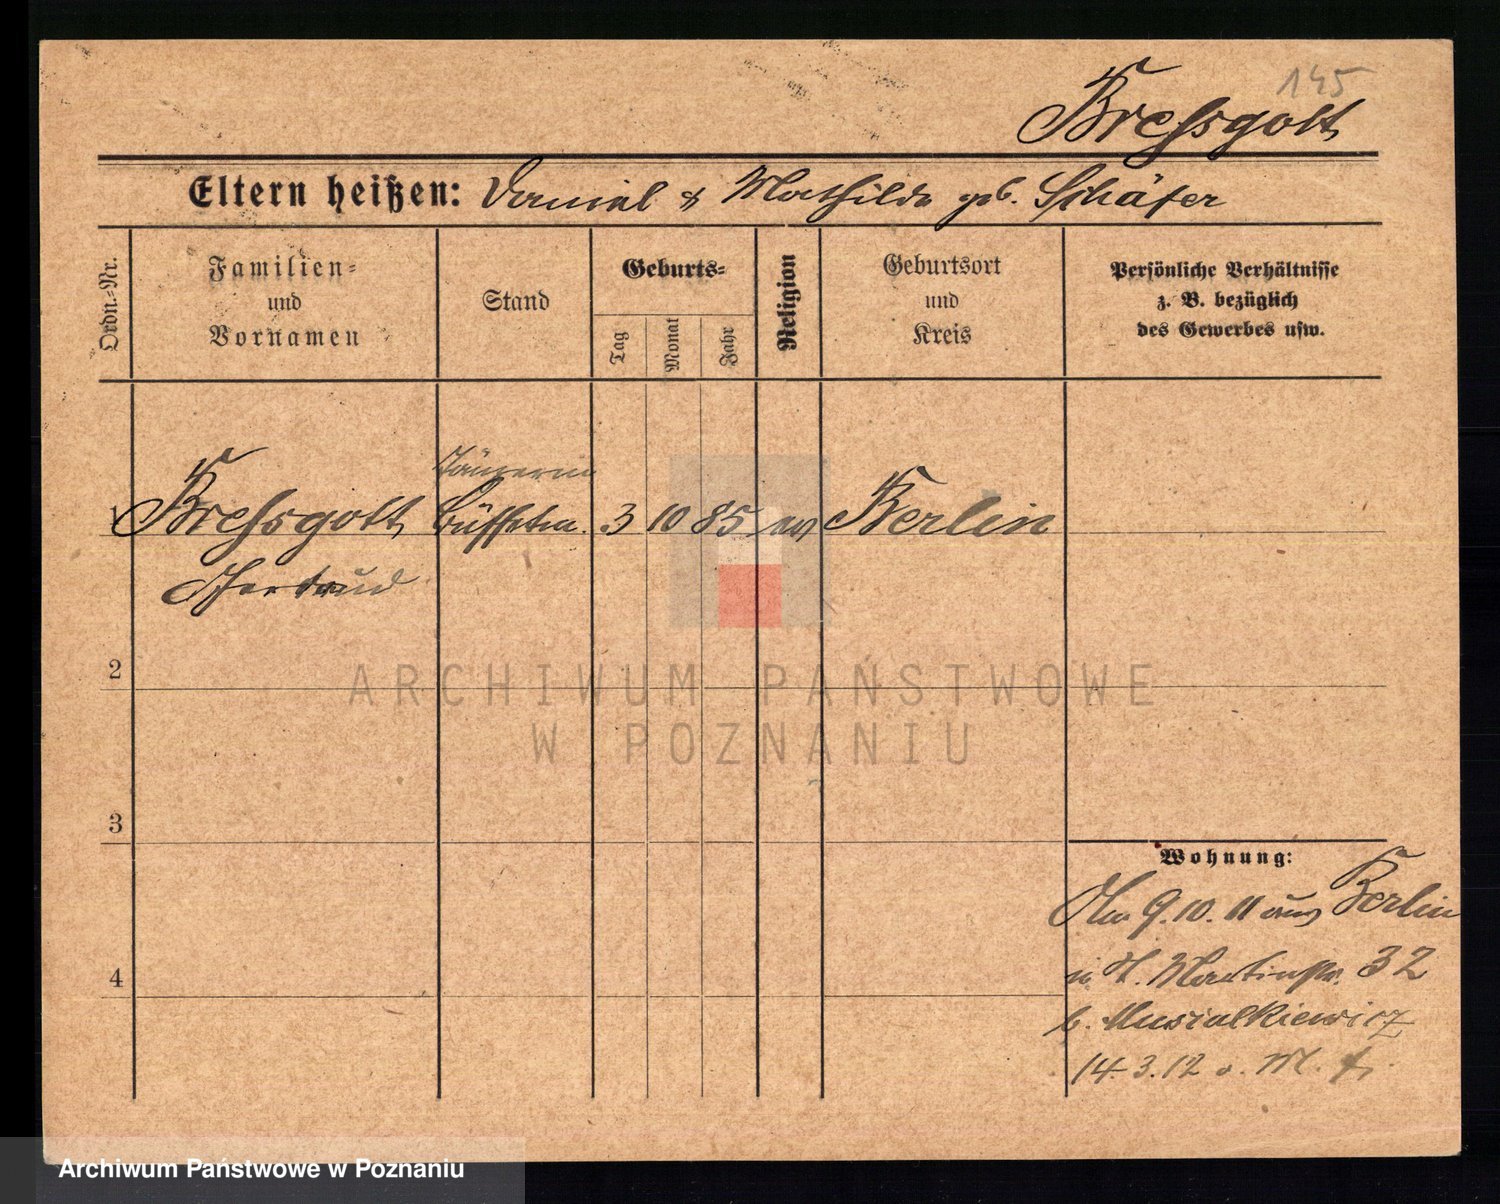 145
Bressgott
Eltern heißen: Daniel & Mathilde geb. Schäfer
Ordn.-Nr.
Familien-
und
Vornamen
Stand
Geburts-
Tag
Monat
Jahr
Religion
Geburtsort
und
Kreis
Persönliche Verhältnisse
z. B. bezüglich
des Gewerbes usw.
1 Bressgott 3 10 85 ev Berlin
Gertrud
2
3
4
Wohnung:
9.10.11 aus Berlin
St. Martinstr. 32
b. Musialkiewicz
14.3.12
ARCHIWUM PAŃSTWOWE
W POZNANIU
Archiwum Państwowe w Poznaniu